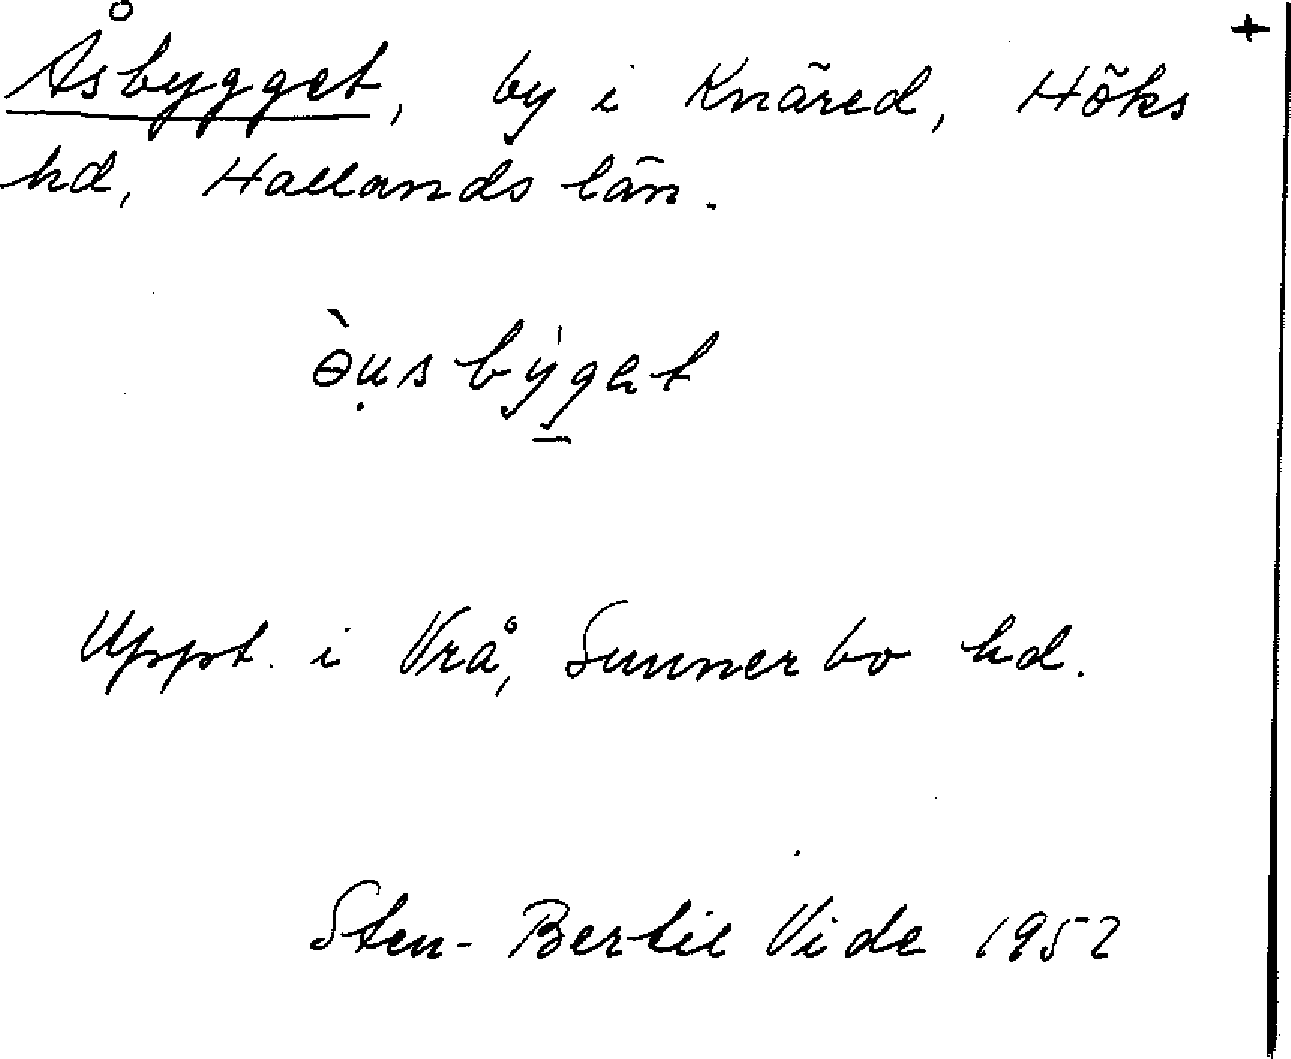 +
Åsbygget, by i Knäred, Höks
hd, Hallands län.
ɵ̀ụsbýg̱et
Uppt. i Vrå, Sunnerbo hd.
Sten-Bertil Vide 1952